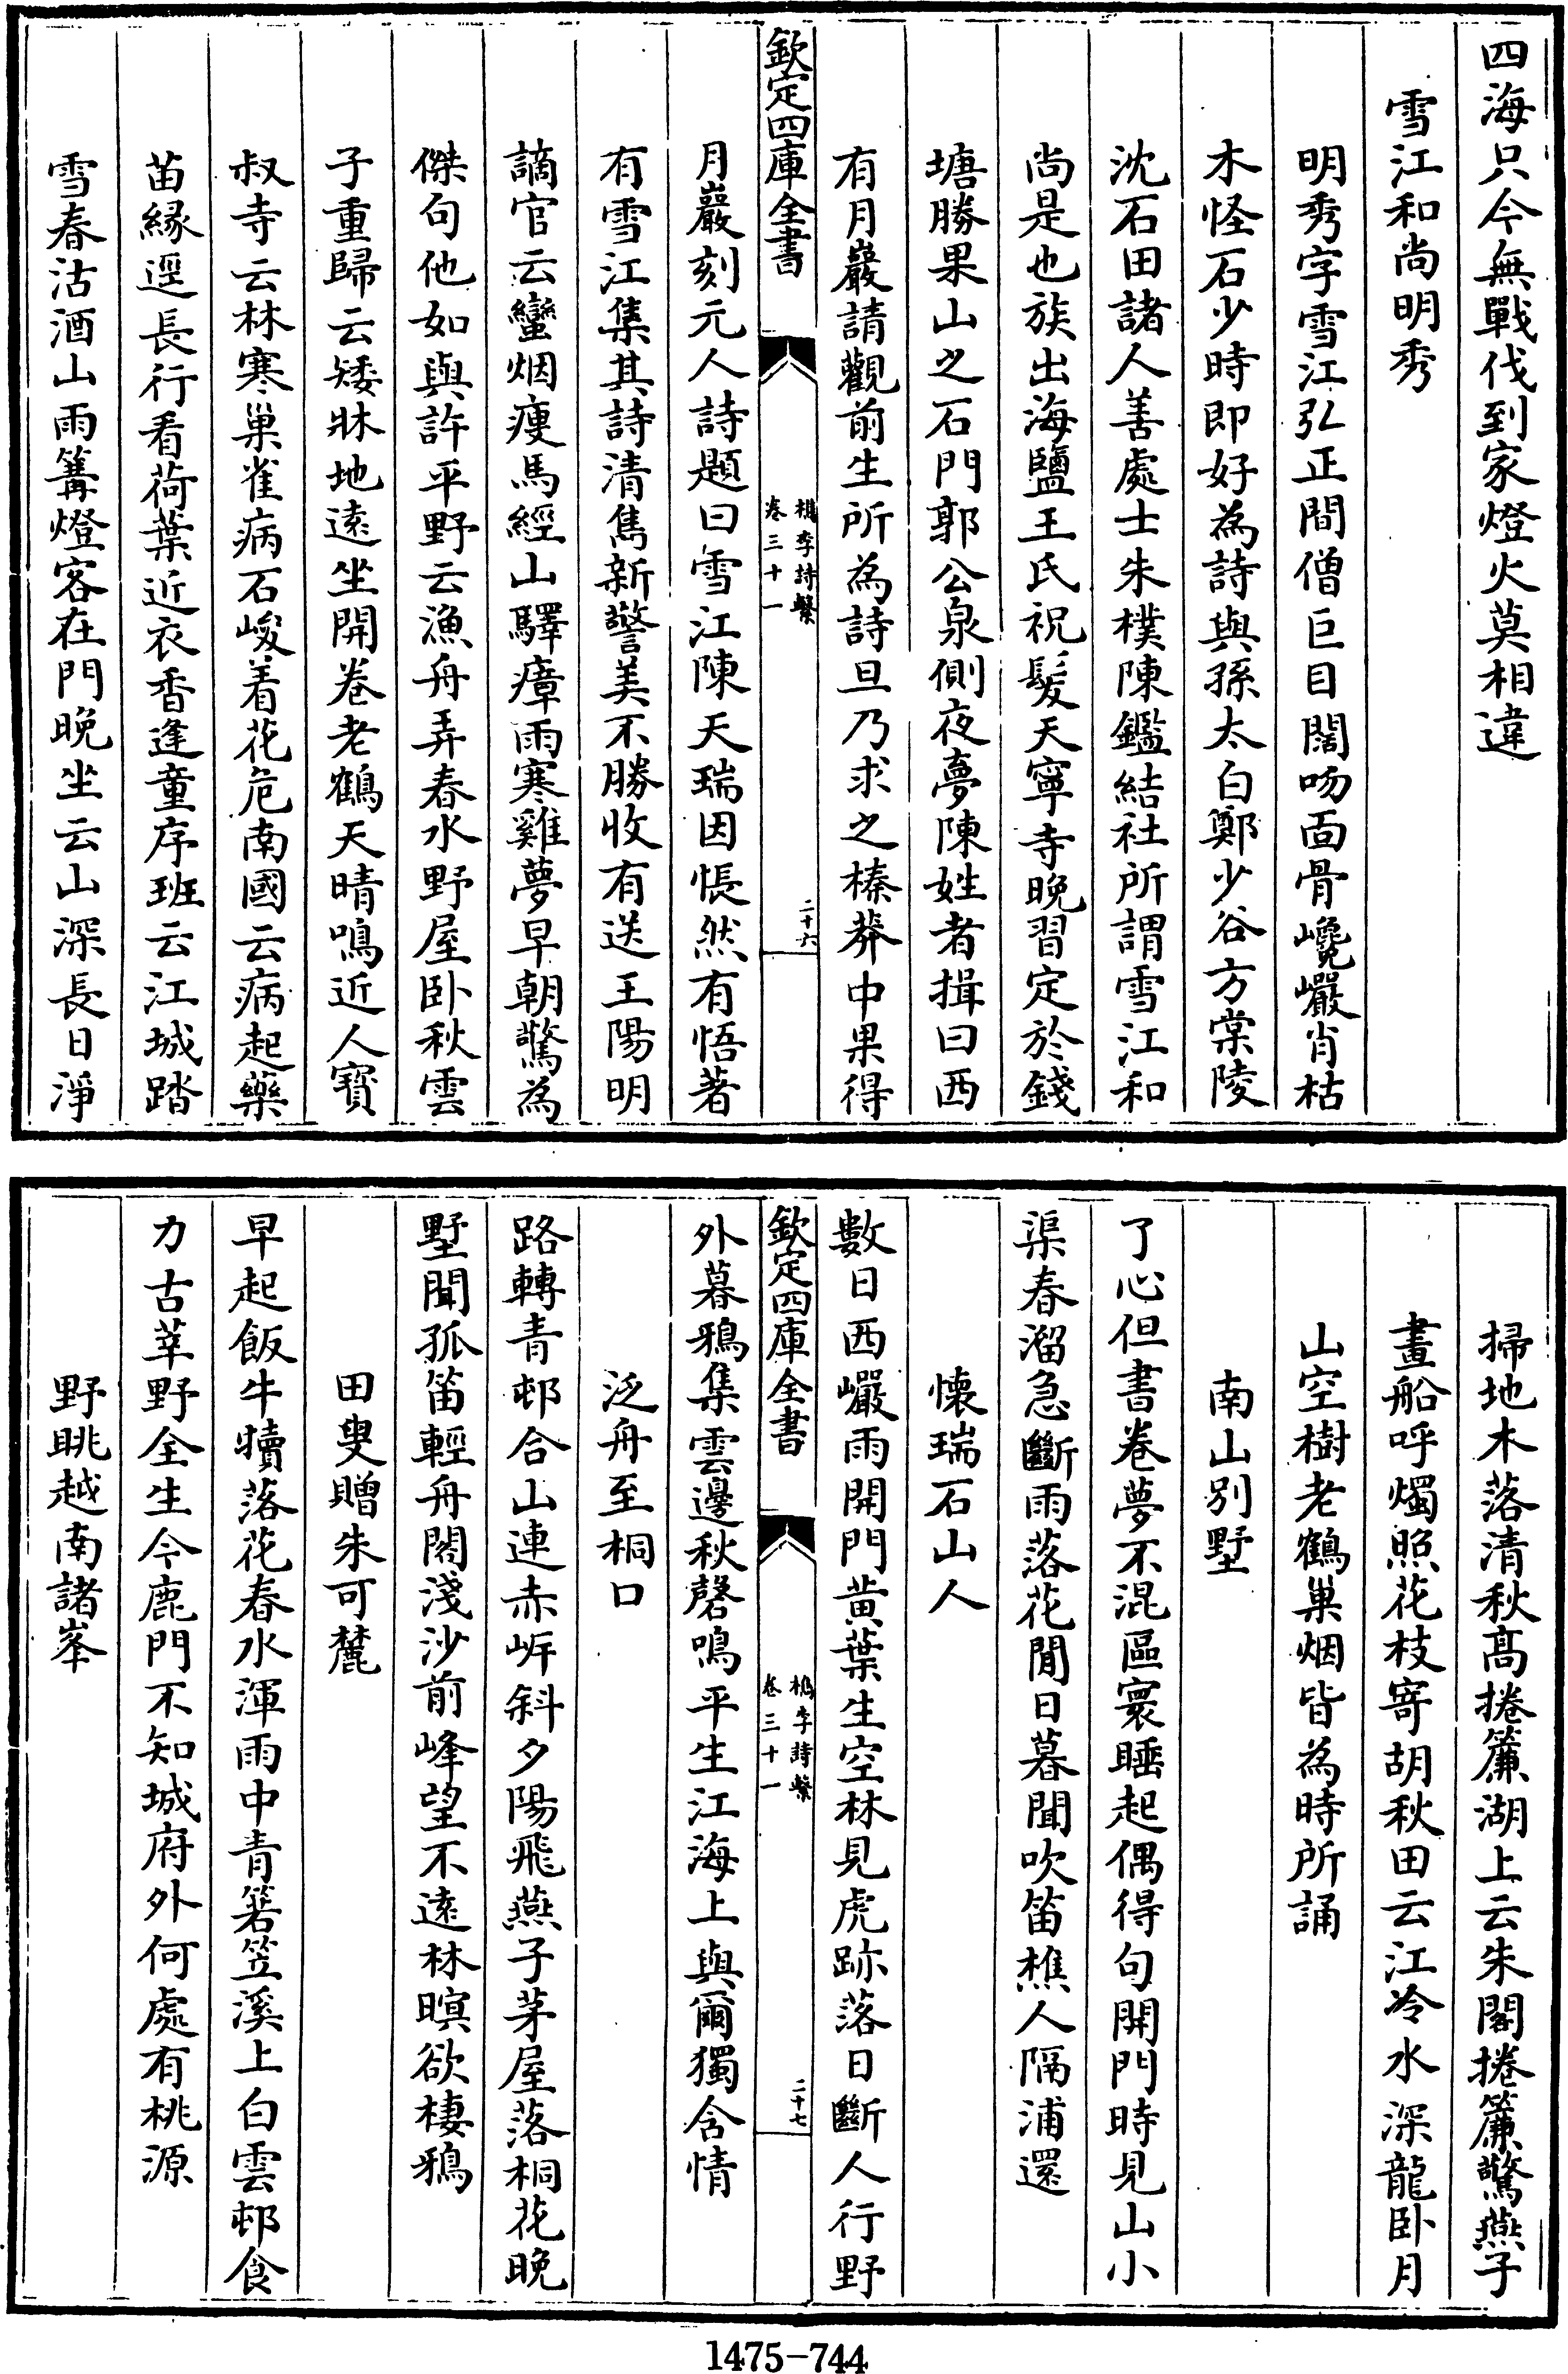 四海只今無戰伐到家燈火莫相違
雪江和尚明秀
明秀字雪江弘正間僧巨目闊吻面骨巉巖肖枯
木怪石少時即好為詩與孫太白鄭少谷方棠陵
沈石田諸人善處士朱樸陳鑑結社所謂雪江和
尚是也族出海鹽王氏祝髮天寧寺晚習定於錢
塘勝果山之石門郭公泉側夜夢陳姓者揖曰西
有月巖請觀前生所為詩旦乃求之榛莽中果得
欽定四庫全書
檇李詩繫
卷三十一
二十六
月巖刻元人詩題曰雪江陳天瑞因悵然有悟著
有雪江集其詩清雋新警美不勝收有送王陽明
謫官云蠻烟瘦馬經山驛瘴雨寒雞夢早朝驚為
傑句他如與許平野云漁舟弄春水野屋卧秋雲
子重歸云矮牀地遠坐開卷老鶴天晴鳴近人寳
叔寺云林寒巢雀病石峻着花危南國云病起藥
苗緣逕長行看荷葉近衣香逢童序班云江城踏
雪春沽酒山雨篝燈客在門晚坐云山深長日淨
掃地木落清秋髙捲簾湖上云朱閣捲簾驚燕子
畫船呼燭照花枝寄胡秋田云江冷水深龍卧月
山空樹老鶴巢烟皆為時所誦
南山别墅
了心但書卷夢不混區寰睡起偶得句開門時見山小
渠春溜急斷雨落花閒日暮聞吹笛樵人隔浦還
懷瑞石山人
數日西巖雨開門黄葉生空林見虎跡落日斷人行野
欽定四庫全書
檇李詩繫
卷三十一
二十七
外暮鴉集雲邊秋磬鳴平生江海上與爾獨含情
泛舟至桐口
路轉青邨合山連赤岍斜夕陽飛燕子茅屋落桐花晚
墅聞孤笛輕舟閣淺沙前峰望不遠林暝欲棲鴉
田叟贈朱可麓
早起飯牛犢落花春水渾雨中青箬笠溪上白雲邨食
力古莘野全生今鹿門不知城府外何處有桃源
野眺越南諸峯
1475-744